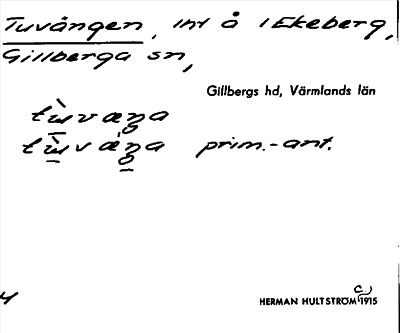 Tuvången, int å 1 Ekeberg,
Gillberga sn,
Gillbergs hd, Värmlands län
tùvæŋa
tùvǽŋa prim.-ant.
HERMAN HULTSTRÖM (c.) 1915